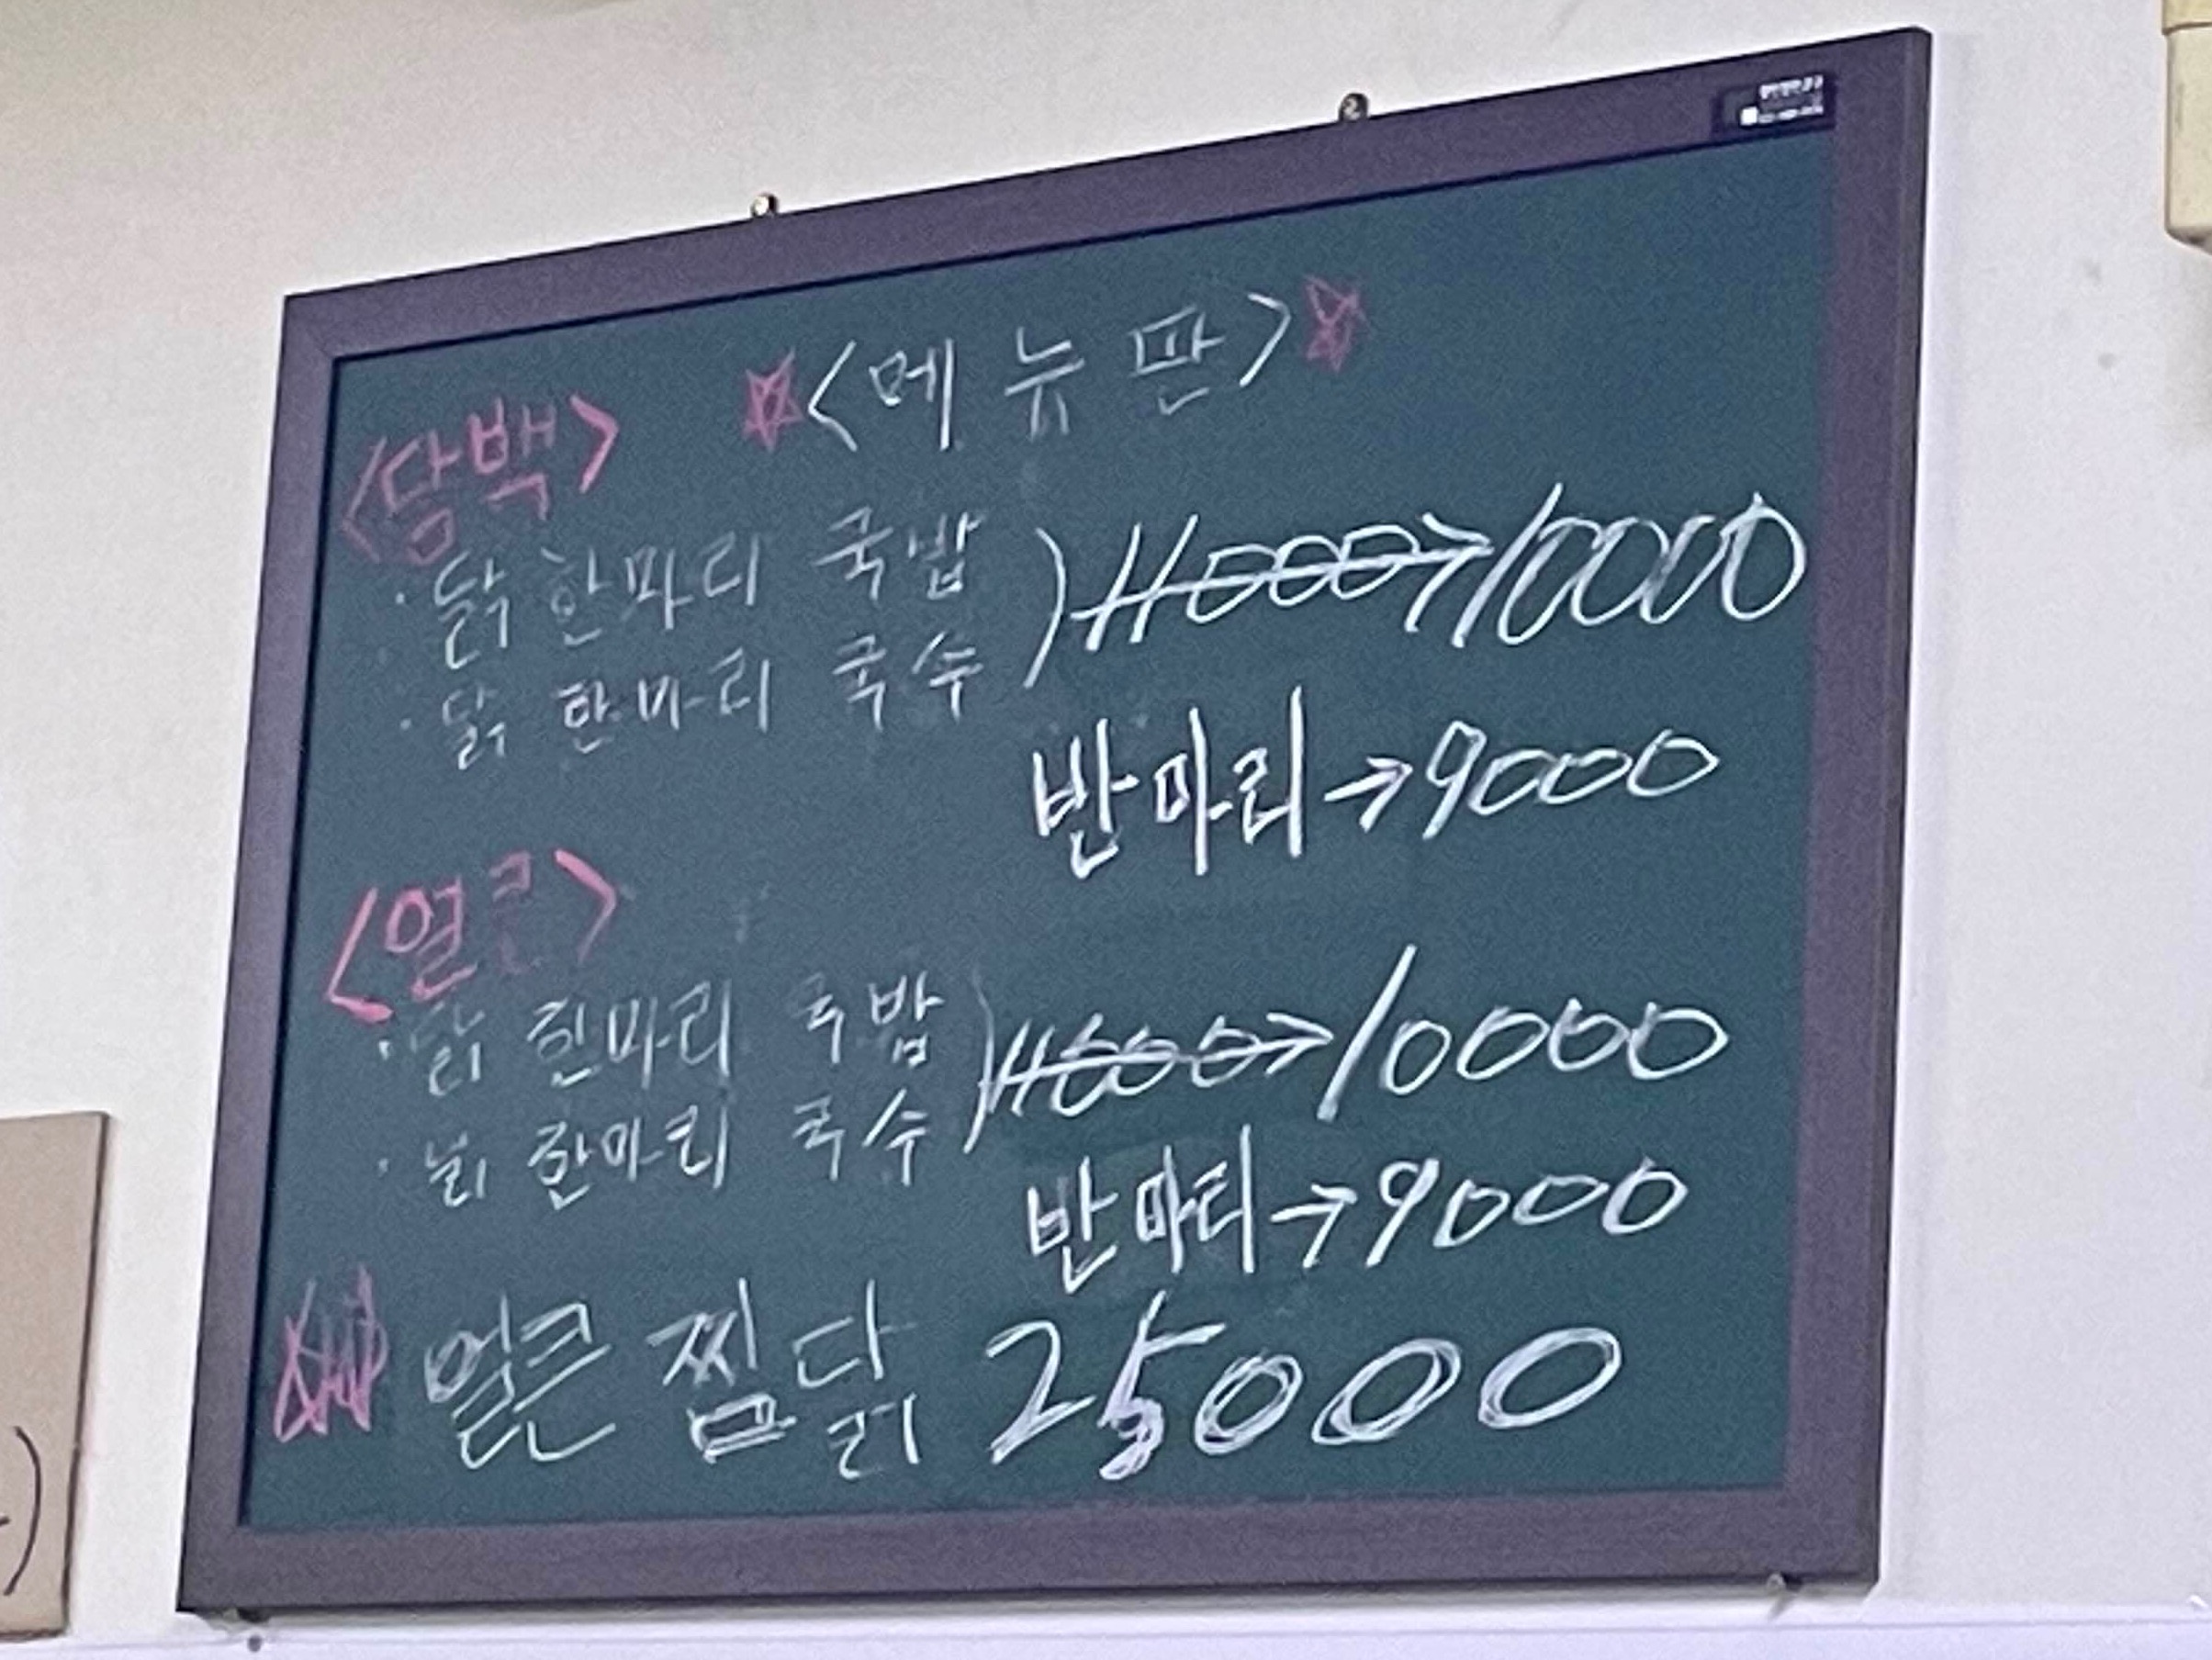 <메뉴판>
<담백>
· 닭 한마리 국밥
· 닭 한마리 국수
) 11000→10000
반마리→9000
<얼큰>
· 닭 한마리 국밥
· 닭 한마리 국수
) 11000→10000
반마리→9000
얼큰 찜닭 25000